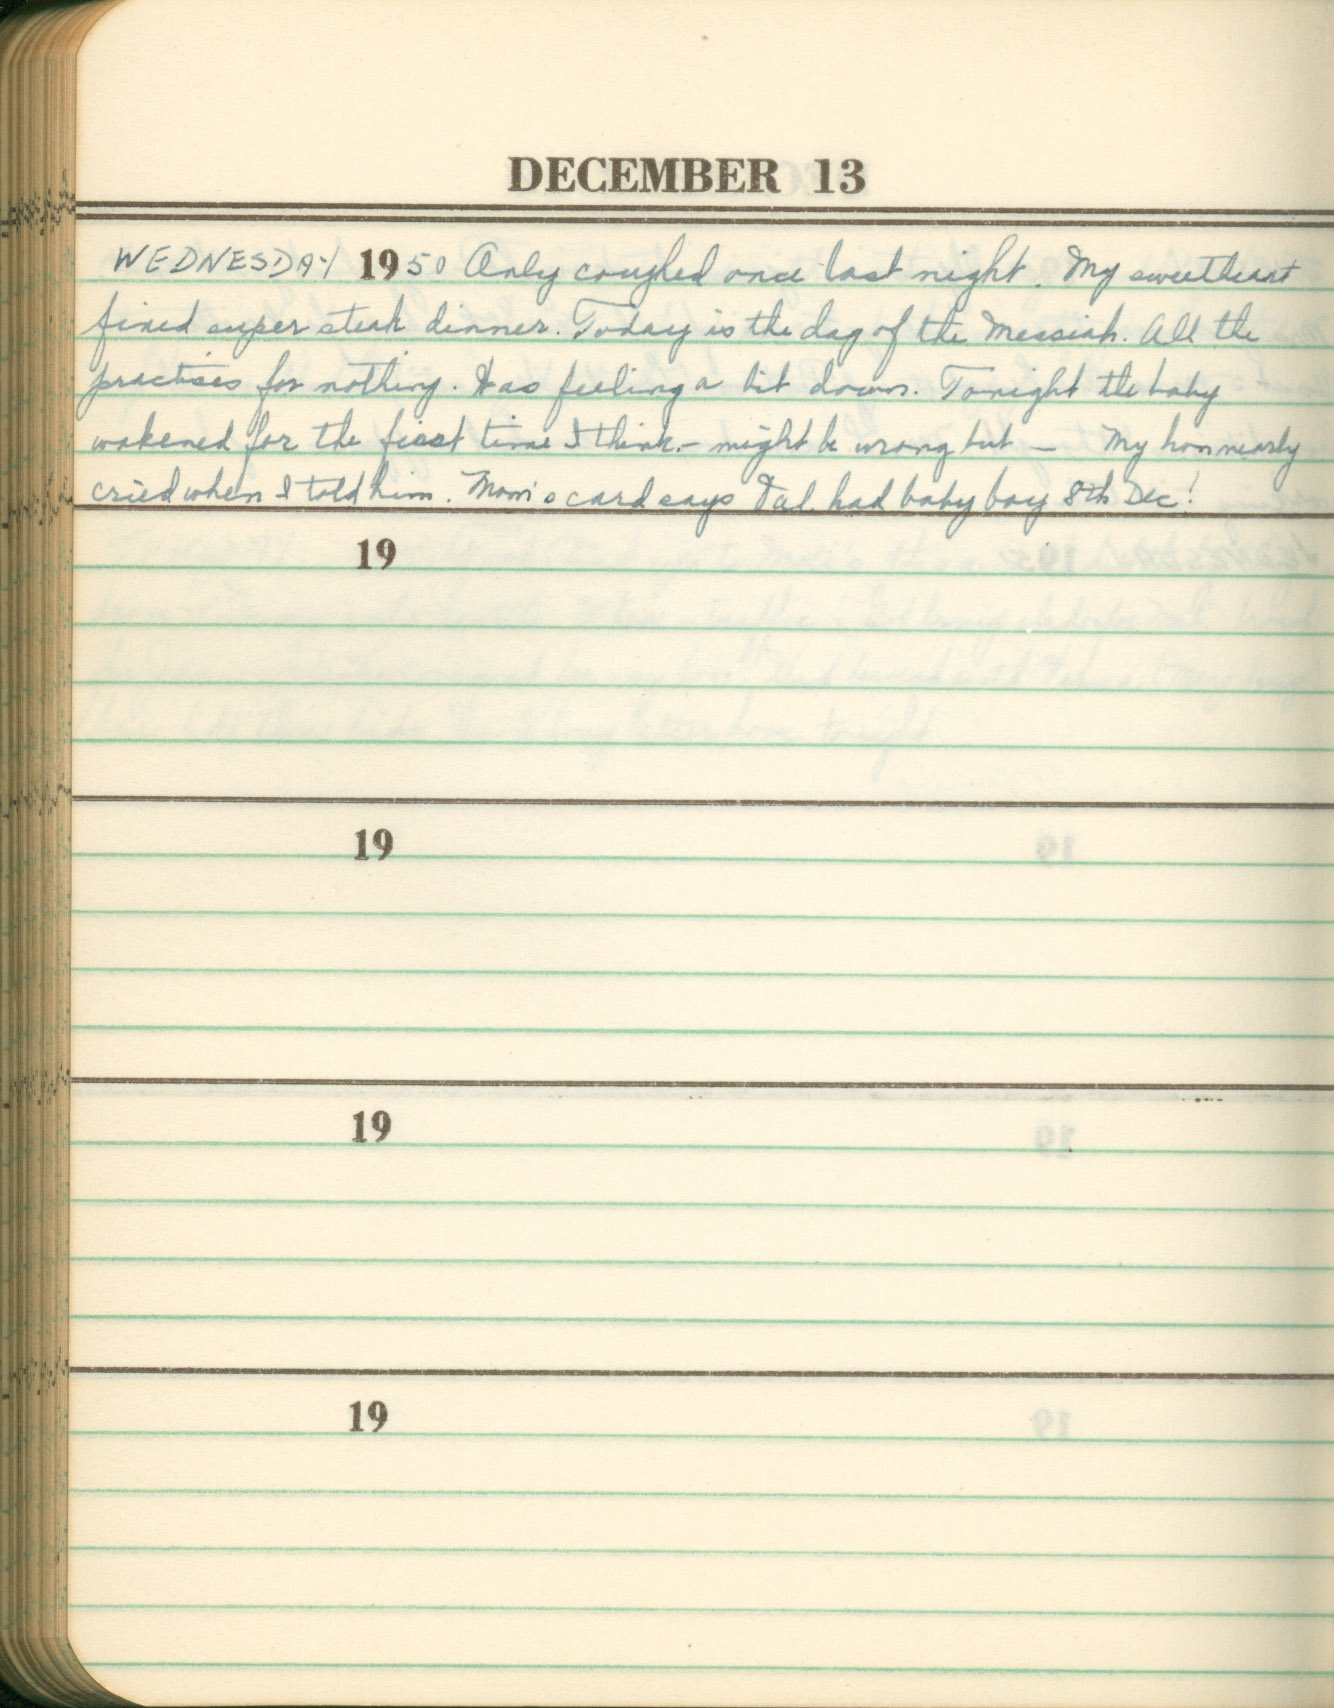 DECEMBER 13
WEDNESDAY 1950 Only coughed once last night. My sweetheart
fixed super steak dinner. Today is the day of the Messiah. All the
practises for nothing. Was feeling a bit down. Tonight the baby
wakened for the first time I think - might be wrong but — My hon nearly
cried when I told him. Mom's card says Val had baby boy 8th Dec!
19
19
19
19